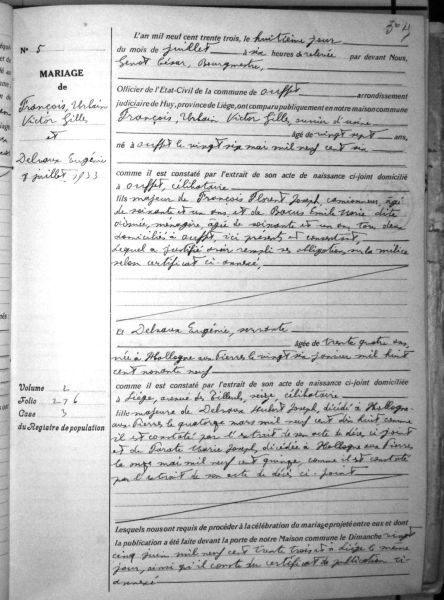 304
N° 5
MARIAGE
de
François, Urbain
Victor Gilles
et
Delvaux Eugénie
8 juillet 1933
Volume 2
Folio 276
Case 3
du Registre de population
L'an mil neuf cent trente trois, le huitième jour
du mois de juillet à six heures de relevée par devant Nous,
Genot César, Bourgmestre,
Officier de l'Etat-Civil de la commune de Ouffet arrondissement
judiciaire de Huy, province de Liége, ont comparu publiquement en notre maison commune
François, Urbain Victor Gilles, ouvrier d'usine
âgé de vingt sept ans,
né à Ouffet le vingt six mai mil neuf cent six
comme il est constaté par l'extrait de son acte de naissance ci-joint domicilié
à Ouffet, célibataire
fils majeur de François Florent Joseph, camionneur, âgé
de soixante et un ans et de Marie dite
ménagère, âgée de soixante et un ans tous deux
domiciliés à Ouffet, ici présents et consentant,
lequel a justifié avoir rempli ses obligations sur la milice
selon certificat ci-annexé,
Et Delvaux Eugénie, servante
âgée de trente quatre ans,
née à Hollogne aux Pierres le vingt six janvier mil huit
cent nonante neuf
comme il est constaté par l'extrait de son acte de naissance ci-joint domiciliée
à Liége, avenue de célibataire
fille majeure de Delvaux Hubert Joseph, décédé à Hollogne
aux Pierres le quatorze mars mil neuf cent dix huit comme
il est constaté par l'extrait de son acte de décès ci-joint
et de Marie Joseph, décédée à Hollogne aux Pierres,
le onze mai mil neuf cent quinze, comme il est constaté
par l'extrait de son acte de décès ci-joint
Lesquels nous ont requis de procéder à la célébration du mariage projeté entre eux et dont
la publication a été faite devant la porte de notre Maison commune le Dimanche vingt
cinq juin mil neuf cent trente trois et à Liége le même
jour, ainsi qu'il conste du certificat de publication ci-
annexé